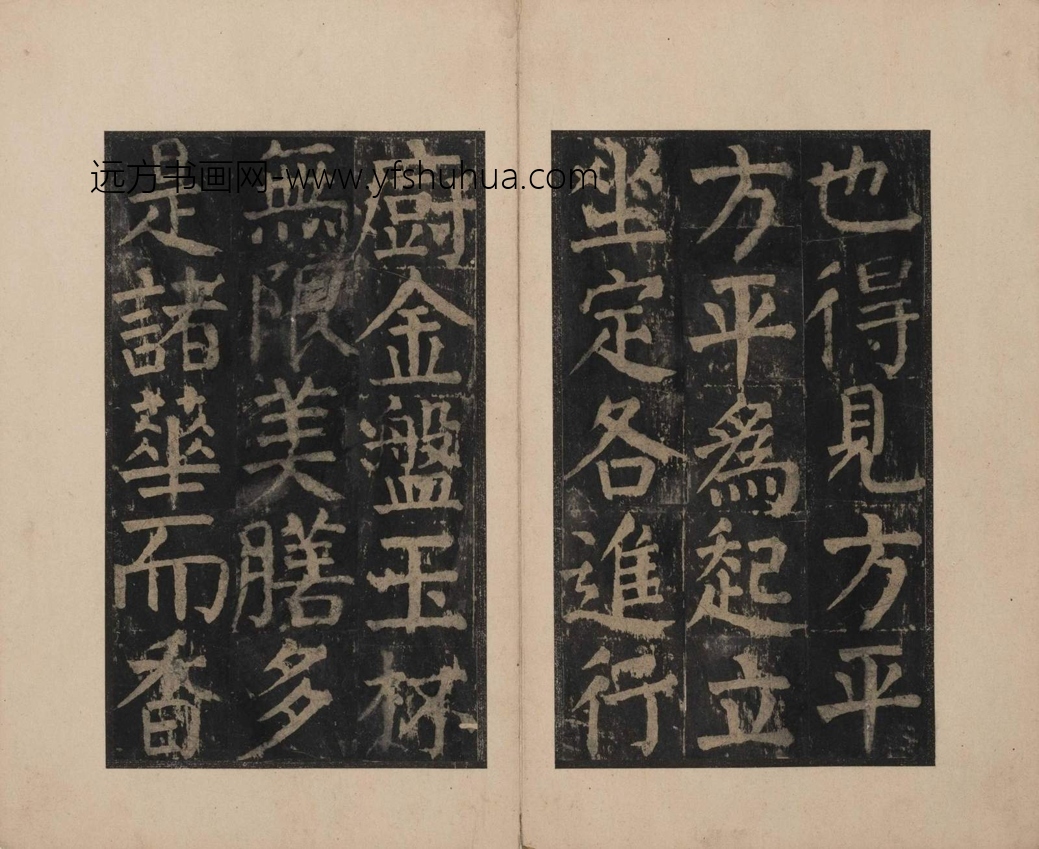 也得見方平
方平為起立
坐定各進行
廚金盤玉杯
無限美膳多
是諸華而香
远方书画网-www.yfshuhua.com